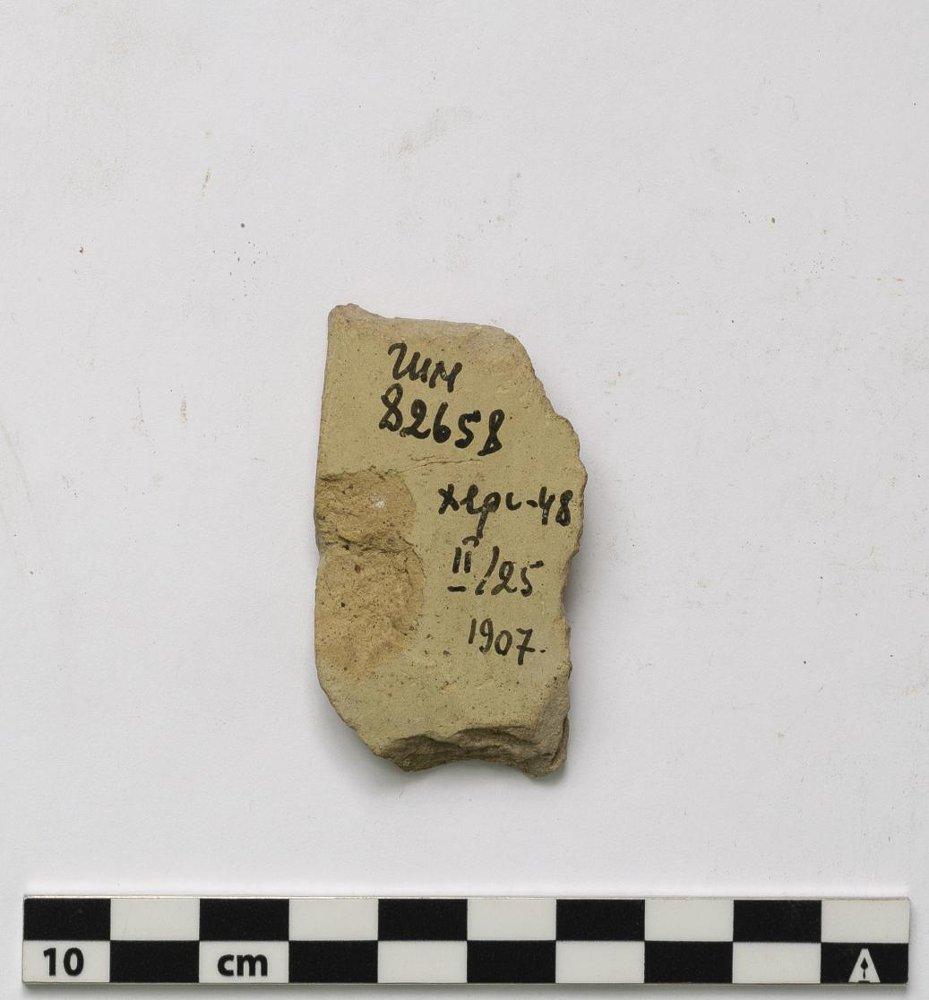 ГИМ
82658
Херс-48
II/25
1907.
10 cm A